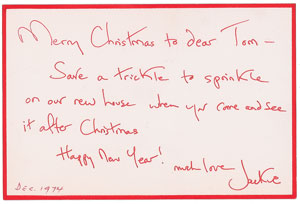 Merry Christmas to dear Tom —
Save a trickle to sprinkle
on our new house when you come and see
it after Christmas
Happy New Year! much love
Jackie
DEC. 1974